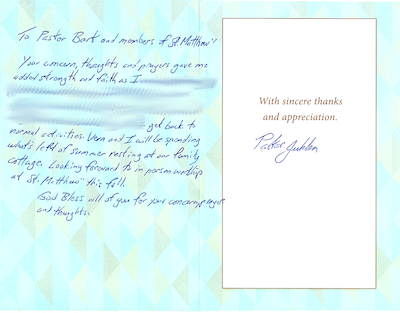 To Pastor Bart and members of St. Matthew's
Your concern, thoughts and prayers gave me
added strength and faith as I
get back to
normal activities. Vern and I will be spending
what's left of summer resting at our family
cottage. Looking forward to in person worship
at St. Matthew's this fall.
God Bless all of you for your concern, prayers
and thoughts.
With sincere thanks
and appreciation.
Pastor